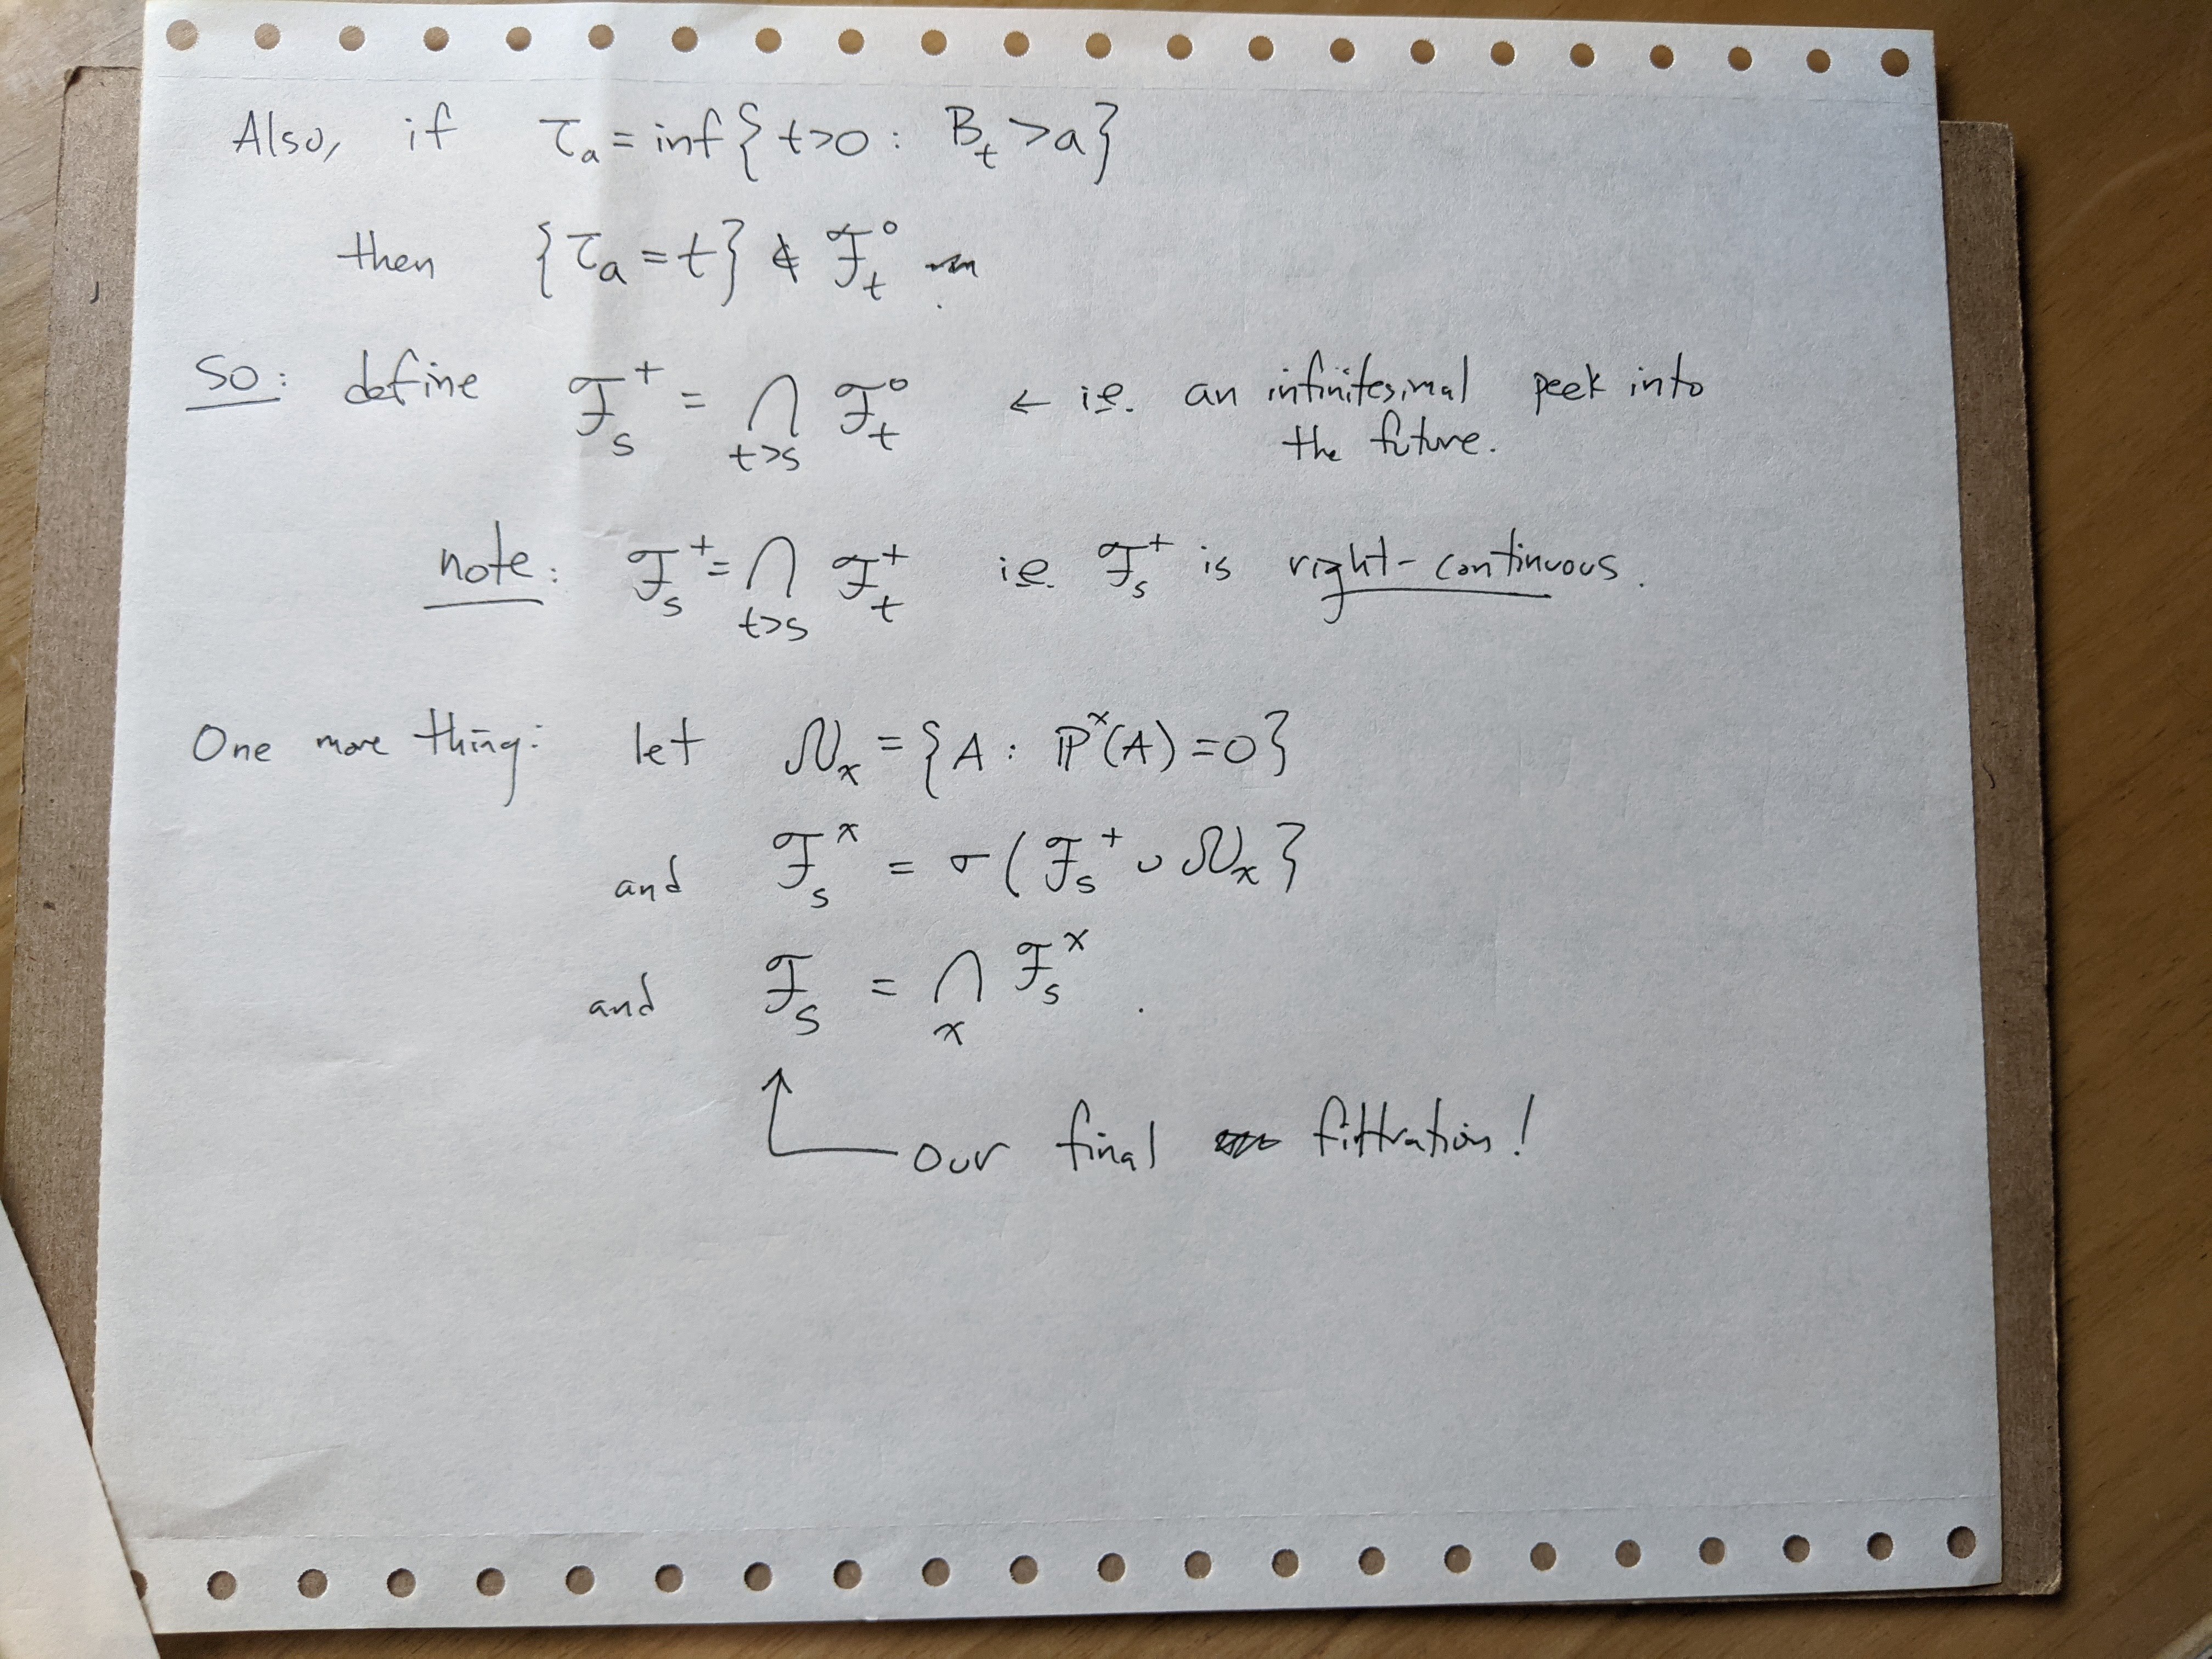 Also, if τₐ = inf{ t>0 : B_t > a}
then {τₐ = t} ∉ ℱ_t^o
So: define ℱ_s^+ = ⋂_{t>s} ℱ_t^o ← i.e. an infinitesimal peek into
the future.
note: ℱ_s^+ = ⋂_{t>s} ℱ_t^+ i.e. ℱ_s^+ is right-continuous.
One more thing: let 𝒩_x = {A : ℙ^x(A) = 0}
and ℱ_s^x = σ(ℱ_s^+ ∪ 𝒩_x}
and ℱ_s = ⋂_x ℱ_s^x .
our final filtration!